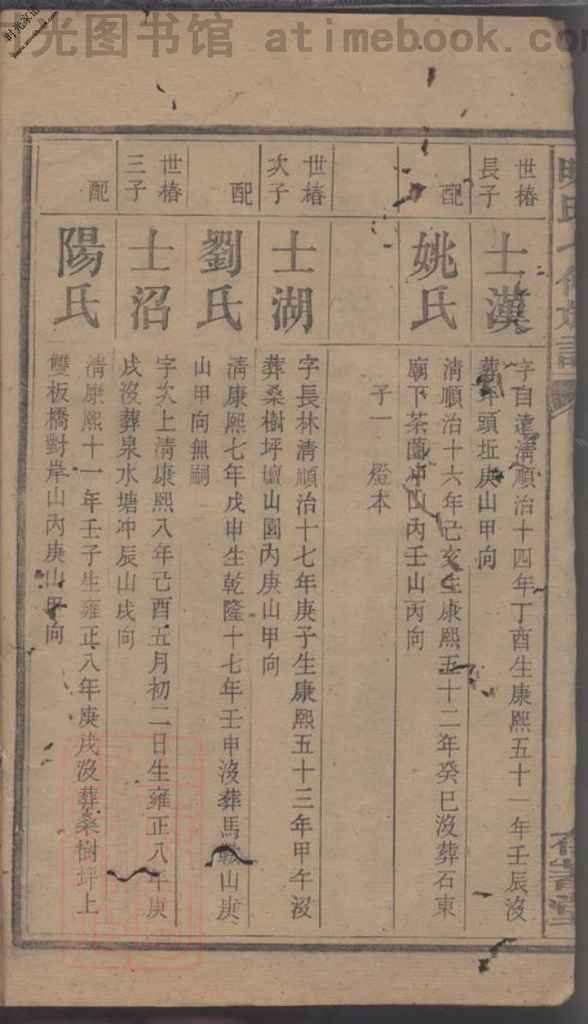 光图书馆 atimebook.com
世椿
長子
士漢
字自遠淸順治十四年丁酉生康熙五十一年壬辰沒
葬井頭坵庚山甲向
配
姚氏
淸順治十六年己亥生康熙五十二年癸巳沒葬石東
廟下茶園冲山內壬山丙向
子一 燈本
世椿
次子
士湖
字長林淸順治十七年庚子生康熙五十三年甲午沒
葬桑樹坪壇山園內庚山甲向
配
劉氏
淸康熙七年戊申生乾隆十七年壬申沒葬馬鞍山庚
山甲向無嗣
世椿
三子
士沼
字次上淸康熙八年己酉五月初二日生雍正八年庚
戌沒葬泉水塘冲辰山戌向
配
陽氏
淸康熙十一年壬子生雍正八年庚戌沒葬桑樹坪上
雙板橋對岸山內庚山甲向